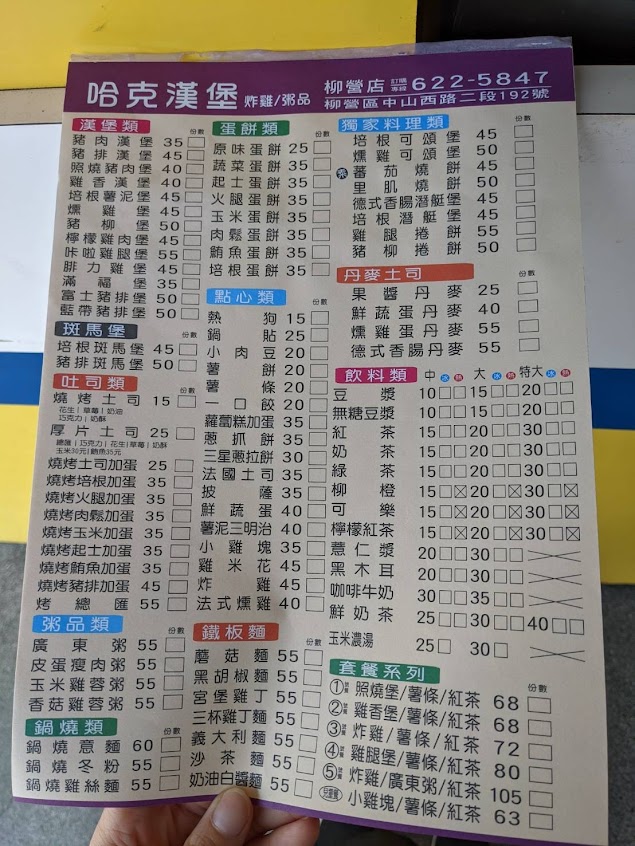 哈克漢堡 炸雞/粥品
柳營店 訂購專線 622-5847
柳營區中山西路二段192號
漢堡類 份數
豬肉漢堡 35
豬排漢堡 45
照燒豬肉堡 40
雞香漢堡 40
培根薯泥堡 45
燻雞堡 45
豬柳堡 50
檸檬雞肉堡 45
咔啦雞腿堡 55
腓力雞堡 45
滿福堡 35
富士豬排堡 50
藍帶豬排堡 50
斑馬堡 份數
培根斑馬堡 45
豬排斑馬堡 50
吐司類 份數
燒烤土司 15
花生|草莓|奶油
巧克力|奶酥
厚片土司 25
總匯|巧克力|花生|草莓|奶酥
玉米30元|鮪魚35元
燒烤土司加蛋 25
燒烤培根加蛋 35
燒烤火腿加蛋 35
燒烤肉鬆加蛋 35
燒烤玉米加蛋 35
燒烤起士加蛋 35
燒烤鮪魚加蛋 35
燒烤豬排加蛋 45
烤總匯 55
粥品類 份數
廣東粥 55
皮蛋瘦肉粥 55
玉米雞蓉粥 55
香菇雞蓉粥 55
鍋燒類 份數
鍋燒意麵 60
鍋燒冬粉 55
鍋燒雞絲麵 55
蛋餅類 份數
原味蛋餅 25
蔬菜蛋餅 35
起士蛋餅 35
火腿蛋餅 35
玉米蛋餅 35
肉鬆蛋餅 35
鮪魚蛋餅 35
培根蛋餅 35
點心類 份數
熱狗 15
鍋貼 25
小肉豆 20
薯餅 20
薯條 20
一口餃 20
蘿蔔糕加蛋 35
蔥抓餅 35
三星蔥拉餅 30
法國土司 35
披薩 35
鮮蔬蛋 40
薯泥三明治 40
小雞塊 35
雞米花 45
炸雞 45
法式燻雞 40
鐵板麵 份數
蘑菇麵 55
黑胡椒麵 55
宮堡雞丁 55
三杯雞丁麵 55
義大利麵 55
沙茶麵 55
奶油白醬麵 55
獨家料理類 份數
培根可頌堡 45
燻雞可頌堡 50
蕃茄燒餅 45
里肌燒餅 50
德式香腸潛艇堡 45
培根潛艇堡 45
雞腿捲餅 55
豬柳捲餅 50
丹麥土司 份數
果醬丹麥 25
鮮蔬蛋丹麥 40
燻雞蛋丹麥 55
德式香腸丹麥 55
飲料類 中 冰 熱 大 冰 熱 特大 冰 熱
豆漿 10 15 20
無糖豆漿 10 15 20
紅茶 15 20 30
奶茶 15 20 30
綠茶 15 20 30
柳橙 15 20 30
可樂 15 20 30
檸檬紅茶 15 20 30
薏仁漿 20 30
黑木耳 20 30
咖啡牛奶 30 35
鮮奶茶 25 30 40
玉米濃湯 25 30
套餐系列 份數
① 照燒堡/薯條/紅茶 68
② 雞香堡/薯條/紅茶 68
③ 炸雞/薯條/紅茶 72
④ 雞腿堡/薯條/紅茶 80
⑤ 炸雞/廣東粥/紅茶 105
小雞塊/薯條/紅茶 63